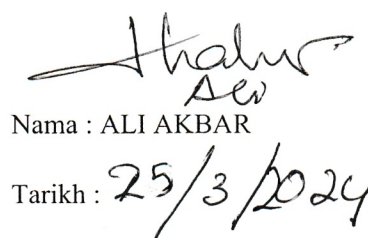 Nama : ALI AKBAR
Tarikh : 25/3/2024